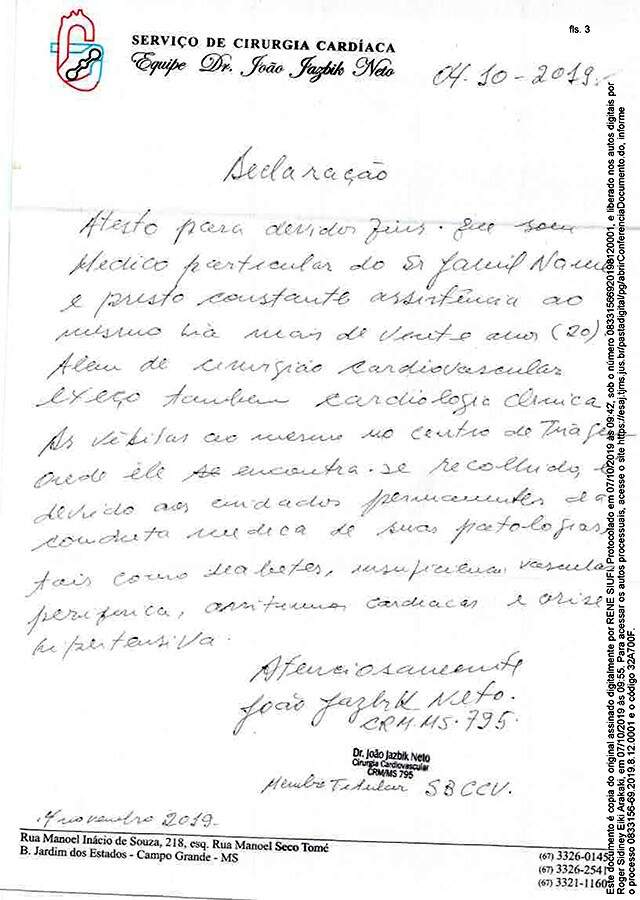 fls. 3
SERVIÇO DE CIRURGIA CARDÍACA
Equipe Dr. João Jazbik Neto
04.10-2019.
Declaração
Atesto para devidos fins. que sou
Medico particular do Sr Jamil Name
e presto constante assistência ao
mesmo há mais de vinte anos (20)
Alem de cirurgião cardiovascular
exerço tambem cardiologia clinica
As visitas ao mesmo no centro de Triagem
onde ele se encontra-se recolhido, é
devido aos cuidados permanentes da
conduta medica de suas patologias,
tais como diabetes, insuficiencia vascular
periferica, arritmias cardiacas e crise
hipertensiva.
Atenciosamente
João Jazbik Neto.
CRM.MS.795.
Dr. João Jazbik Neto
Cirurgia Cardiovascular
CRM/MS 795
Membro Titular SBCCV.
novembro 2019.
Rua Manoel Inácio de Souza, 218, esq. Rua Manoel Seco Tomé
B. Jardim dos Estados - Campo Grande - MS
(67) 3326-0145
(67) 3326-2541
(67) 3321-1160
Este documento é copia do original assinado digitalmente por RENE SIUFI. Protocolado em 07/10/2019 às 09:42, sob o número 08331566920198120001, e liberado nos autos digitais por
Roger Sidiney Eiki Arakaki, em 07/10/2019 às 09:55. Para acessar os autos processuais, acesse o site https://esaj.tjms.jus.br/pastadigital/pg/abrirConferenciaDocumento.do, informe
o processo 0833156-69.2019.8.12.0001 e o código 32A700F.